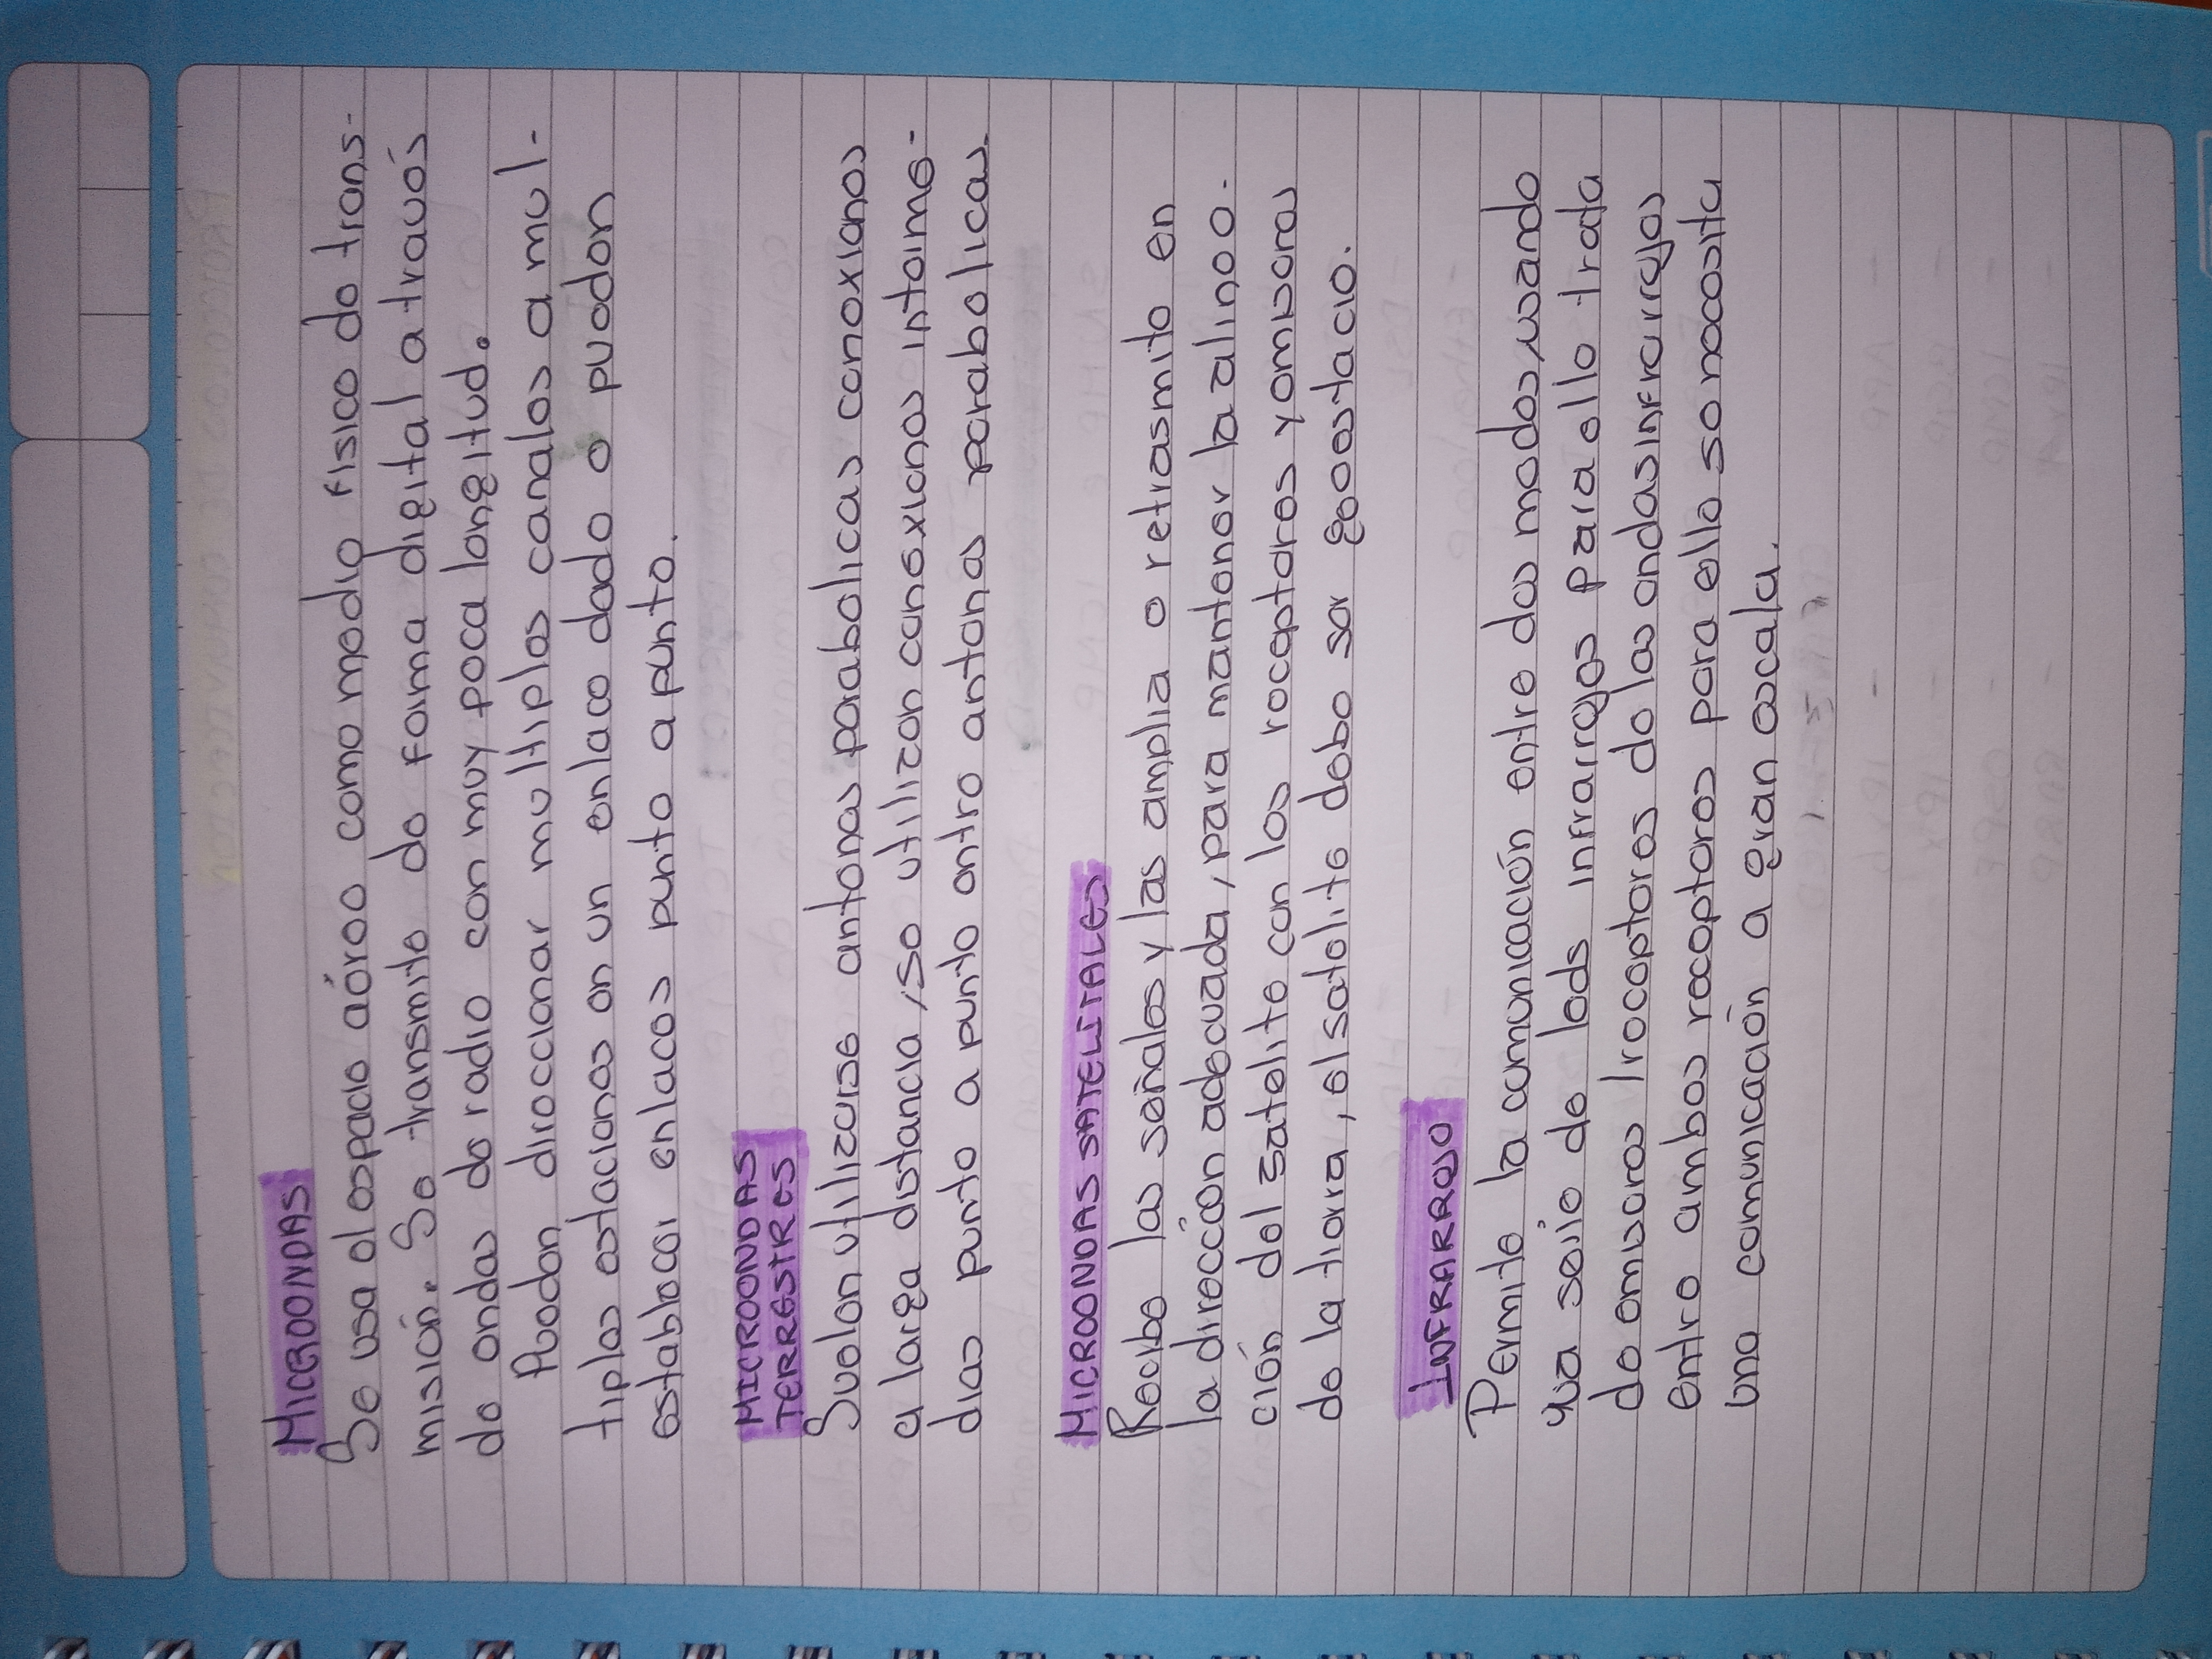 MICROONDAS
Se usa el espacio aéreo como medio físico de trans-
misión. Se transmite de forma digital a través
de ondas de radio con muy poca longitud.
Pueden direccionar multiples canales a mul-
tiples estaciones en un enlace dado o pueden
establecer enlaces punto a punto.
MICROONDAS
TERRESTRES
Suelen utilizarse antenas parabolicas conexiones
a larga distancia, se utilizan conexiones intelme-
dias punto a punto entre antenas parabolicas.
MICROONDAS SATELITALES
Recibe las señales y las amplia o retrasmite en
la dirección adecuada, para mantener la alineo.
ción del satelite con los receptores y emisores
de la tierra, el satelite debe ser geoestacio.
INFRARROJO
Permite la comunicación entre dos nodos, usando
una serie de leds infrarrojos para ello trata
de emisores / receptores de las ondas infrarrojas
entre ambos receptores para ello se necesita
una comunicación a gran escala.